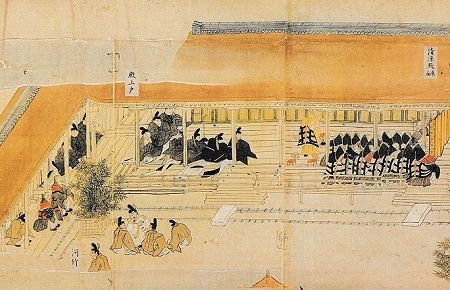 清涼殿
殿上戸
河竹